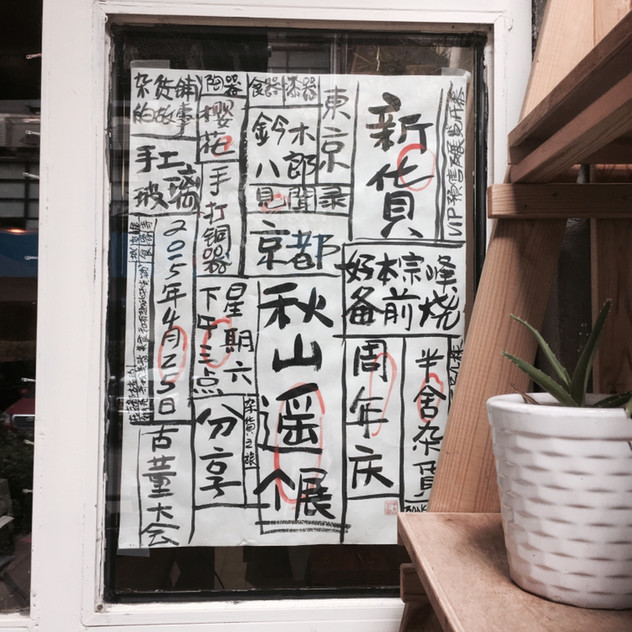 VIP预售展
新货
東京录
食器 漆器
鈴木
八郎
見聞
京都
好本宗峰
备前烧
半舍杂货
周年庆
秋山遥
个展
陶器
樱花
手打铜器
星期六
下午三点
分享
杂货之旅
杂货铺
的故事
手工
玻璃
2015年4月25日
古董大会